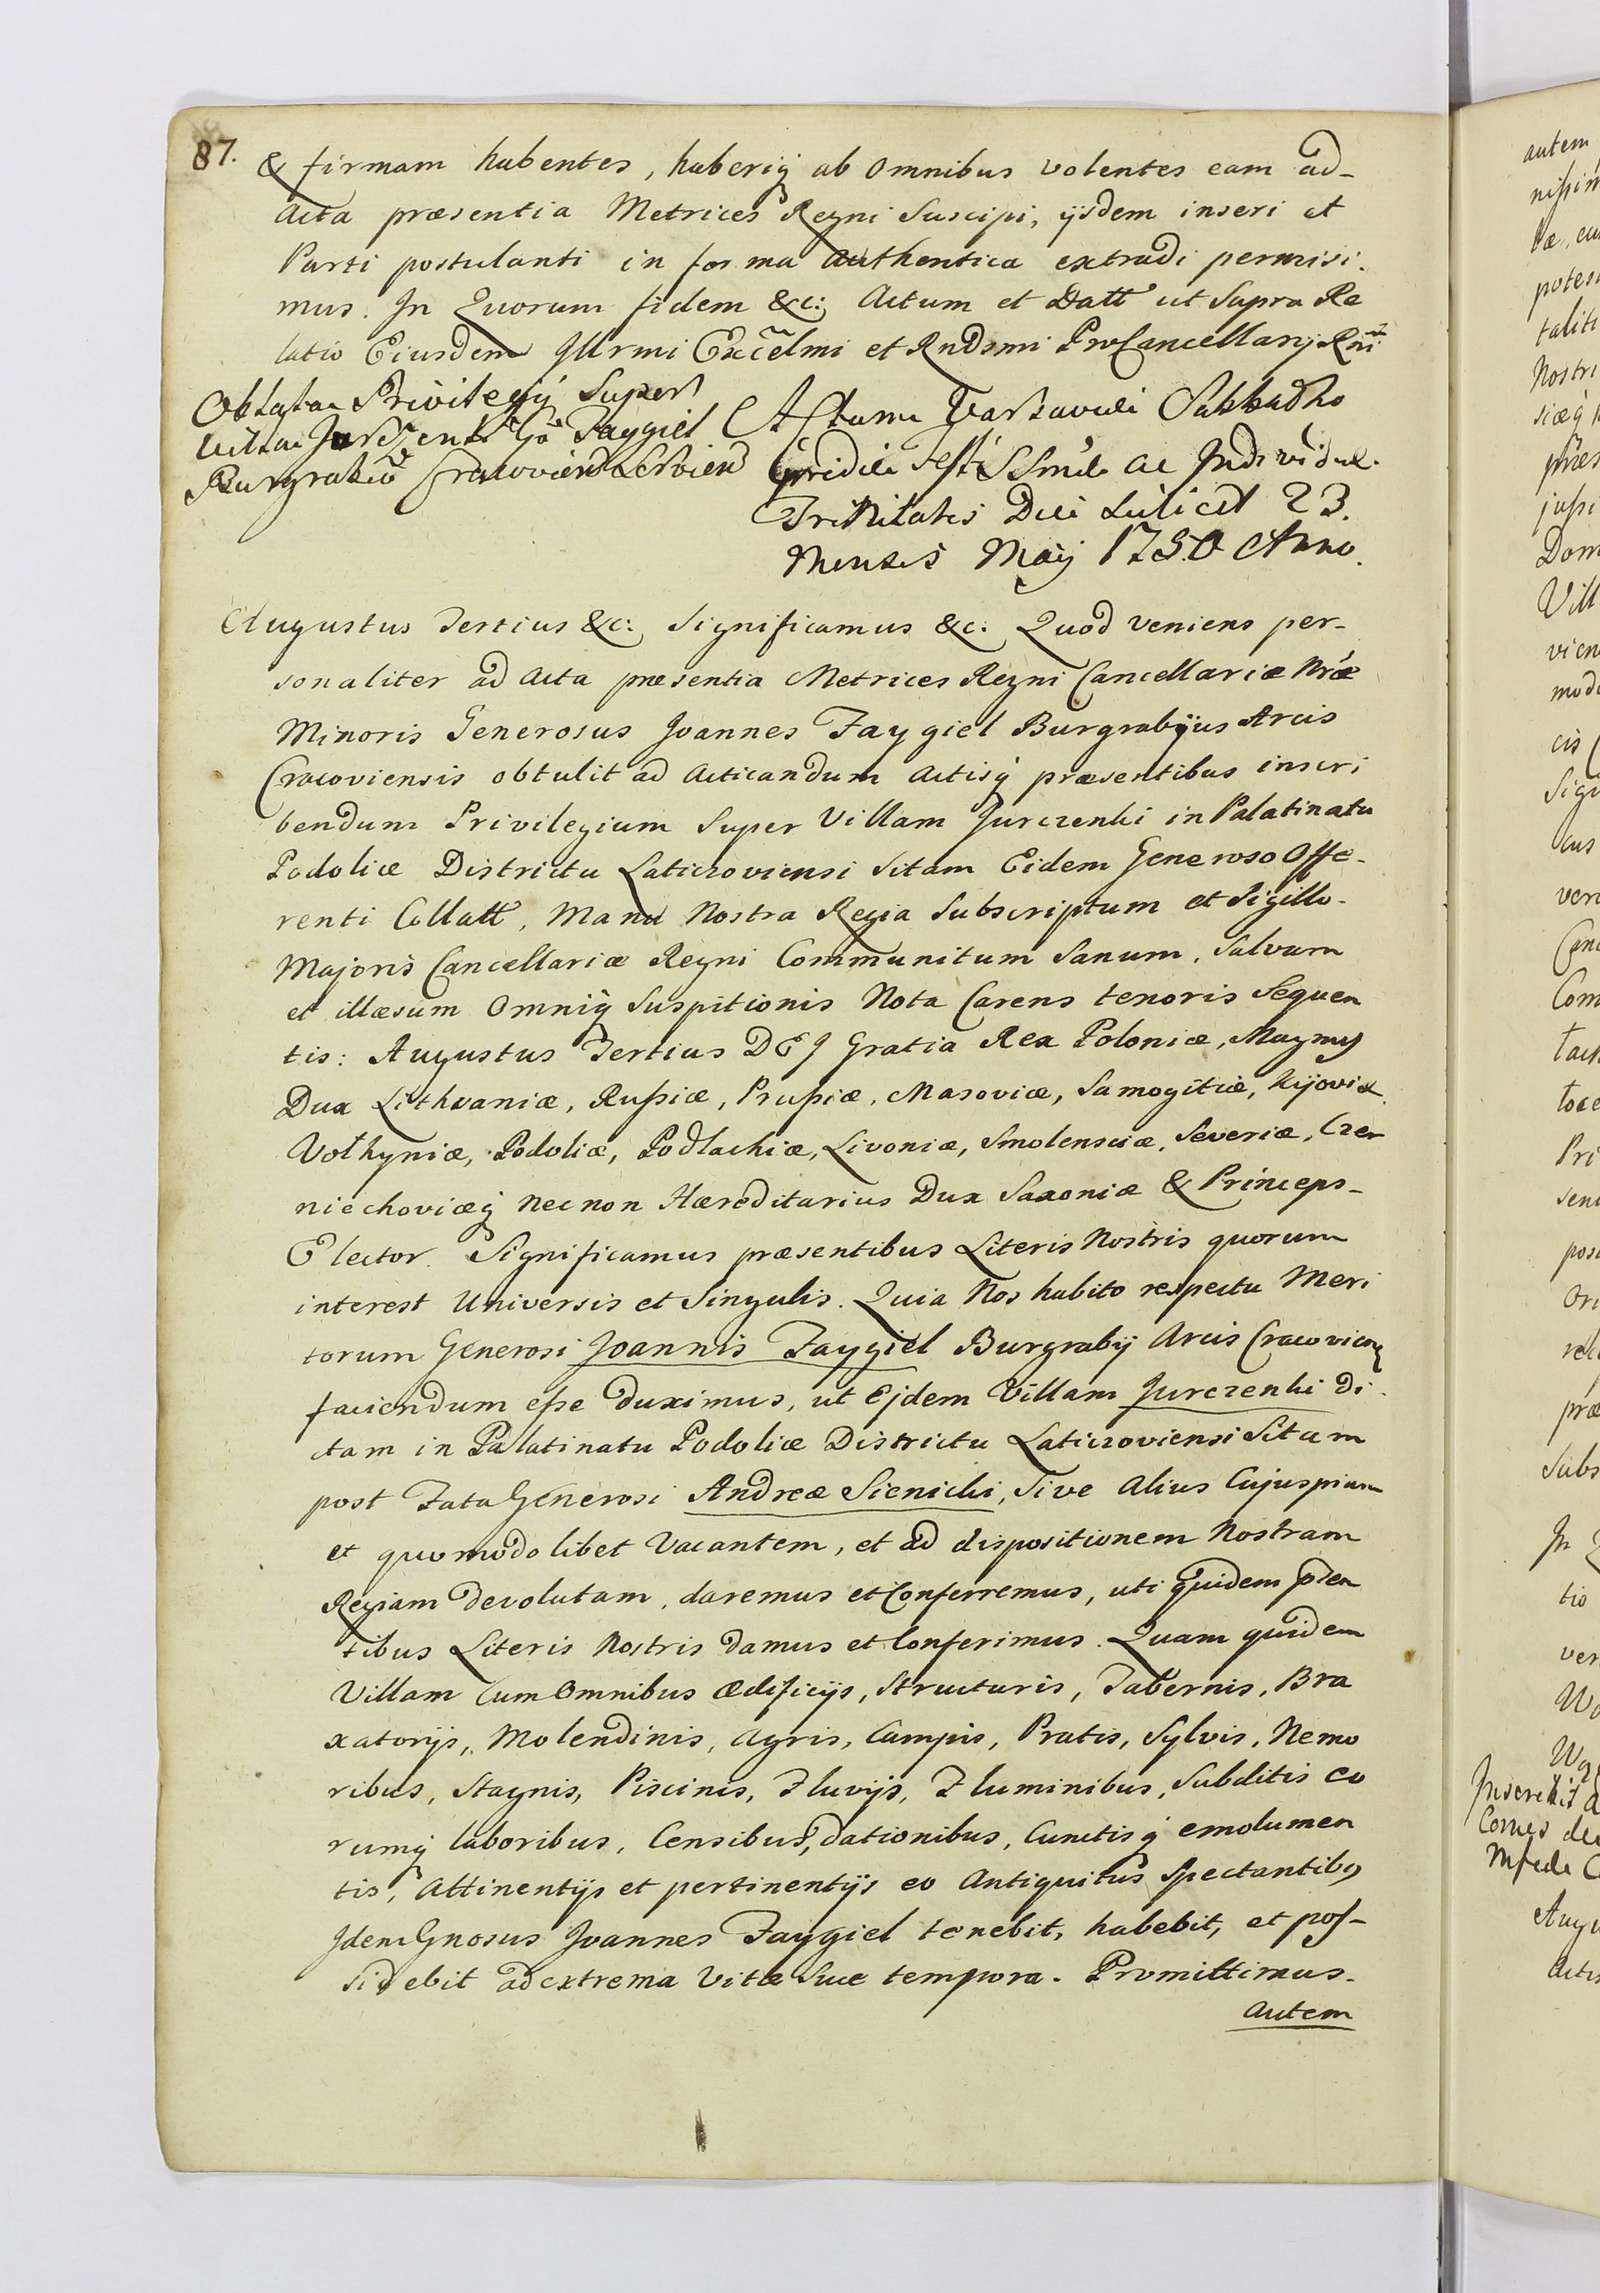 87.
& firmam habentes, haberiq ab omnibus volentes eam ad-
Acta præsentia Metrices Regni Suscipi, ijsdem inseri et
Parti postulanti in forma authentica extradi permisi.
mus. In Quorum fidem &c: Actum et Datt ut Supra Re
latio Eiusdem Illrmi Excelmi et Rndsmi ProCancellarij Rni
Oblata Privilegij Super
Villam Jurczenki Gò Faygiel
Burgrabio Cracoviens Servien
Actum Varsaviæ Sabbatho
pridie Festi SSmæ ac Individuæ
Trinitatis Diei Scilicet 23.
Mensis Maij 1750 Anno.
Augustus Tertius &c: Significamus &c: Quod veniens per-
sonaliter ad Acta præsentia Metrices Regni Cancellariæ Nræ
Minoris Generosus Joannes Faygiel Burgrabijus Arcis
Cracoviensis obtulit ad Acticandum Actisq præsentibus inscri
bendum Privilegium Super Villam Jurczenki in Palatinatu
Podoliæ Districtu Laticzoviensi Sitam Eidem Generoso Offe-
renti Collatt, Manu Nostra Regia Subscriptum et Sigillo-
Majoris Cancellariæ Regni Communitum Sanum, Salvum
et illæsum Omniq Suspitionis Nota Carens tenoris Sequen
tis: Augustus Tertius DEJ Gratia Rex Poloniæ, Magnus
Dux Lithvaniæ, Rußiæ, Prußiæ, Masoviæ, Samogitiæ, Kijoviæ
Volhyniæ, Podoliæ, Podlachiæ, Livoniæ, Smolensciæ, Severiæ, Czer
niechoviæq necnon Hæreditarius Dux Saxoniæ & Princeps-
Elector. Significamus præsentibus Literis Nostris quorum
interest Universis et Singulis. Quia Nos habito respectu Meri
torum Generosi Joannis Faygiel Burgrabij Arcis Cracovien
faciendum eße duximus, ut Ejdem Villam Jurczenki di
ctam in Palatinatu Podoliæ Districtu Laticzoviensi Sitam
post Fata Generosi Andreæ Sienicki, Sive Alius Cujuspiam
et quomodolibet Vacantem, et ad dispositionem Nostram
Regiam devolutam, daremus et Conferremus, uti quidem psen
tibus Literis Nostris damus et Conferimus. Quam quidem
Villam Cum Omnibus Ædificijs, Structuris, Tabernis, Bra
xatorijs, Molendinis, Agris, Campis, Pratis, Sylvis, Nemo
ribus, Stagnis, Piscinis, Fluvijs, Fluminibus, Subditis eo
rumq laboribus, Censibus, dationibus, Cunctisq emolumen
tis, Attinentijs et pertinentijs eo Antiquitus Spectantibus
Idem Gnosus Joannes Faygiel tenebit, habebit, et pos-
sidebit ad extrema Vitæ Suæ tempora. Promittimus-
autem
autem
potes
taliti
Nostri
siæq
præs
jußi
Dom
Vill
vien
cis
ver
Com
Pri
In
tio
ver
Comes